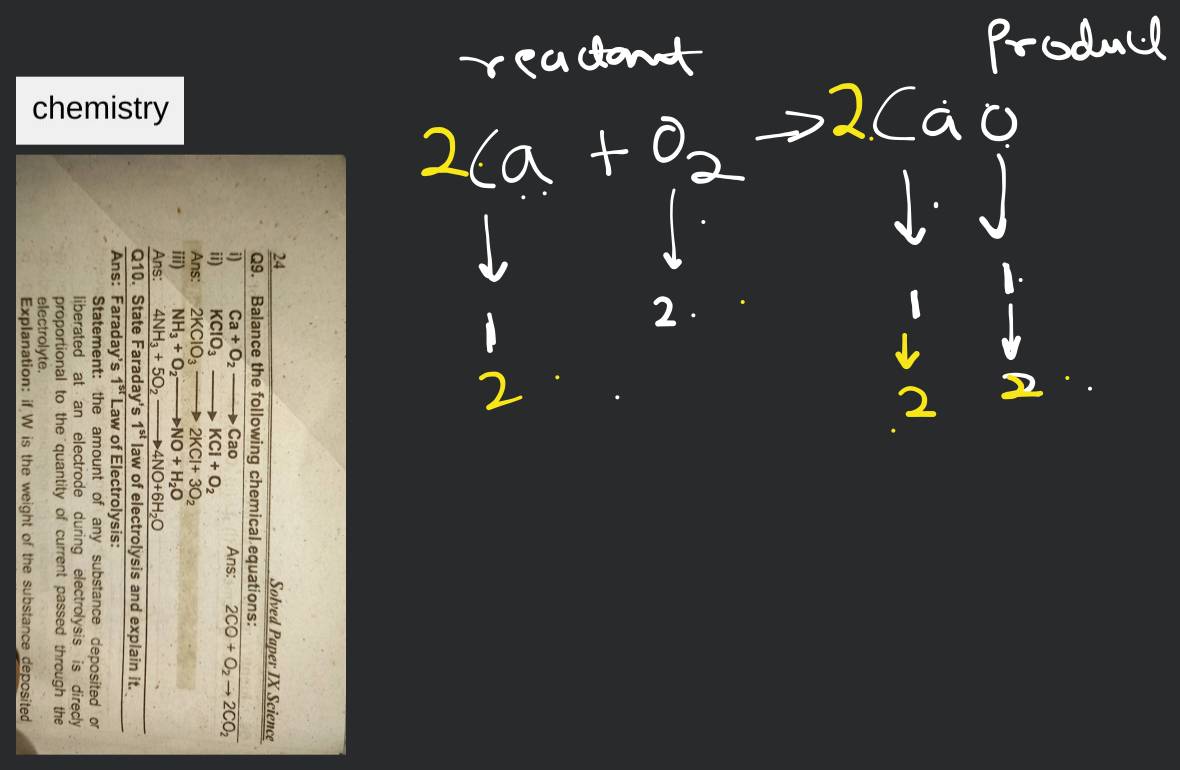 chemistry
reactant Product
2Ca + O2 → 2CaO
1 2. 1 1.
2 2 2
24 Solved Paper IX Science
Q9. Balance the following chemical equations:
i) Ca + O₂ → Cao Ans: 2CO + O₂ → 2CO₂
ii) KClO₃ → KCl + O₂
Ans: 2KClO₃ → 2KCl + 3O₂
iii) NH₃ + O₂ → NO + H₂O
Ans: 4NH₃ + 5O₂ → 4NO+6H₂O
Q10. State Faraday's 1st law of electrolysis and explain it.
Ans: Faraday's 1st Law of Electrolysis:
Statement: the amount of any substance deposited or
liberated at an electrode during electrolysis is direcly
proportional to the quantity of current passed through the
electrolyte.
Explanation: if W is the weight of the substance deposited